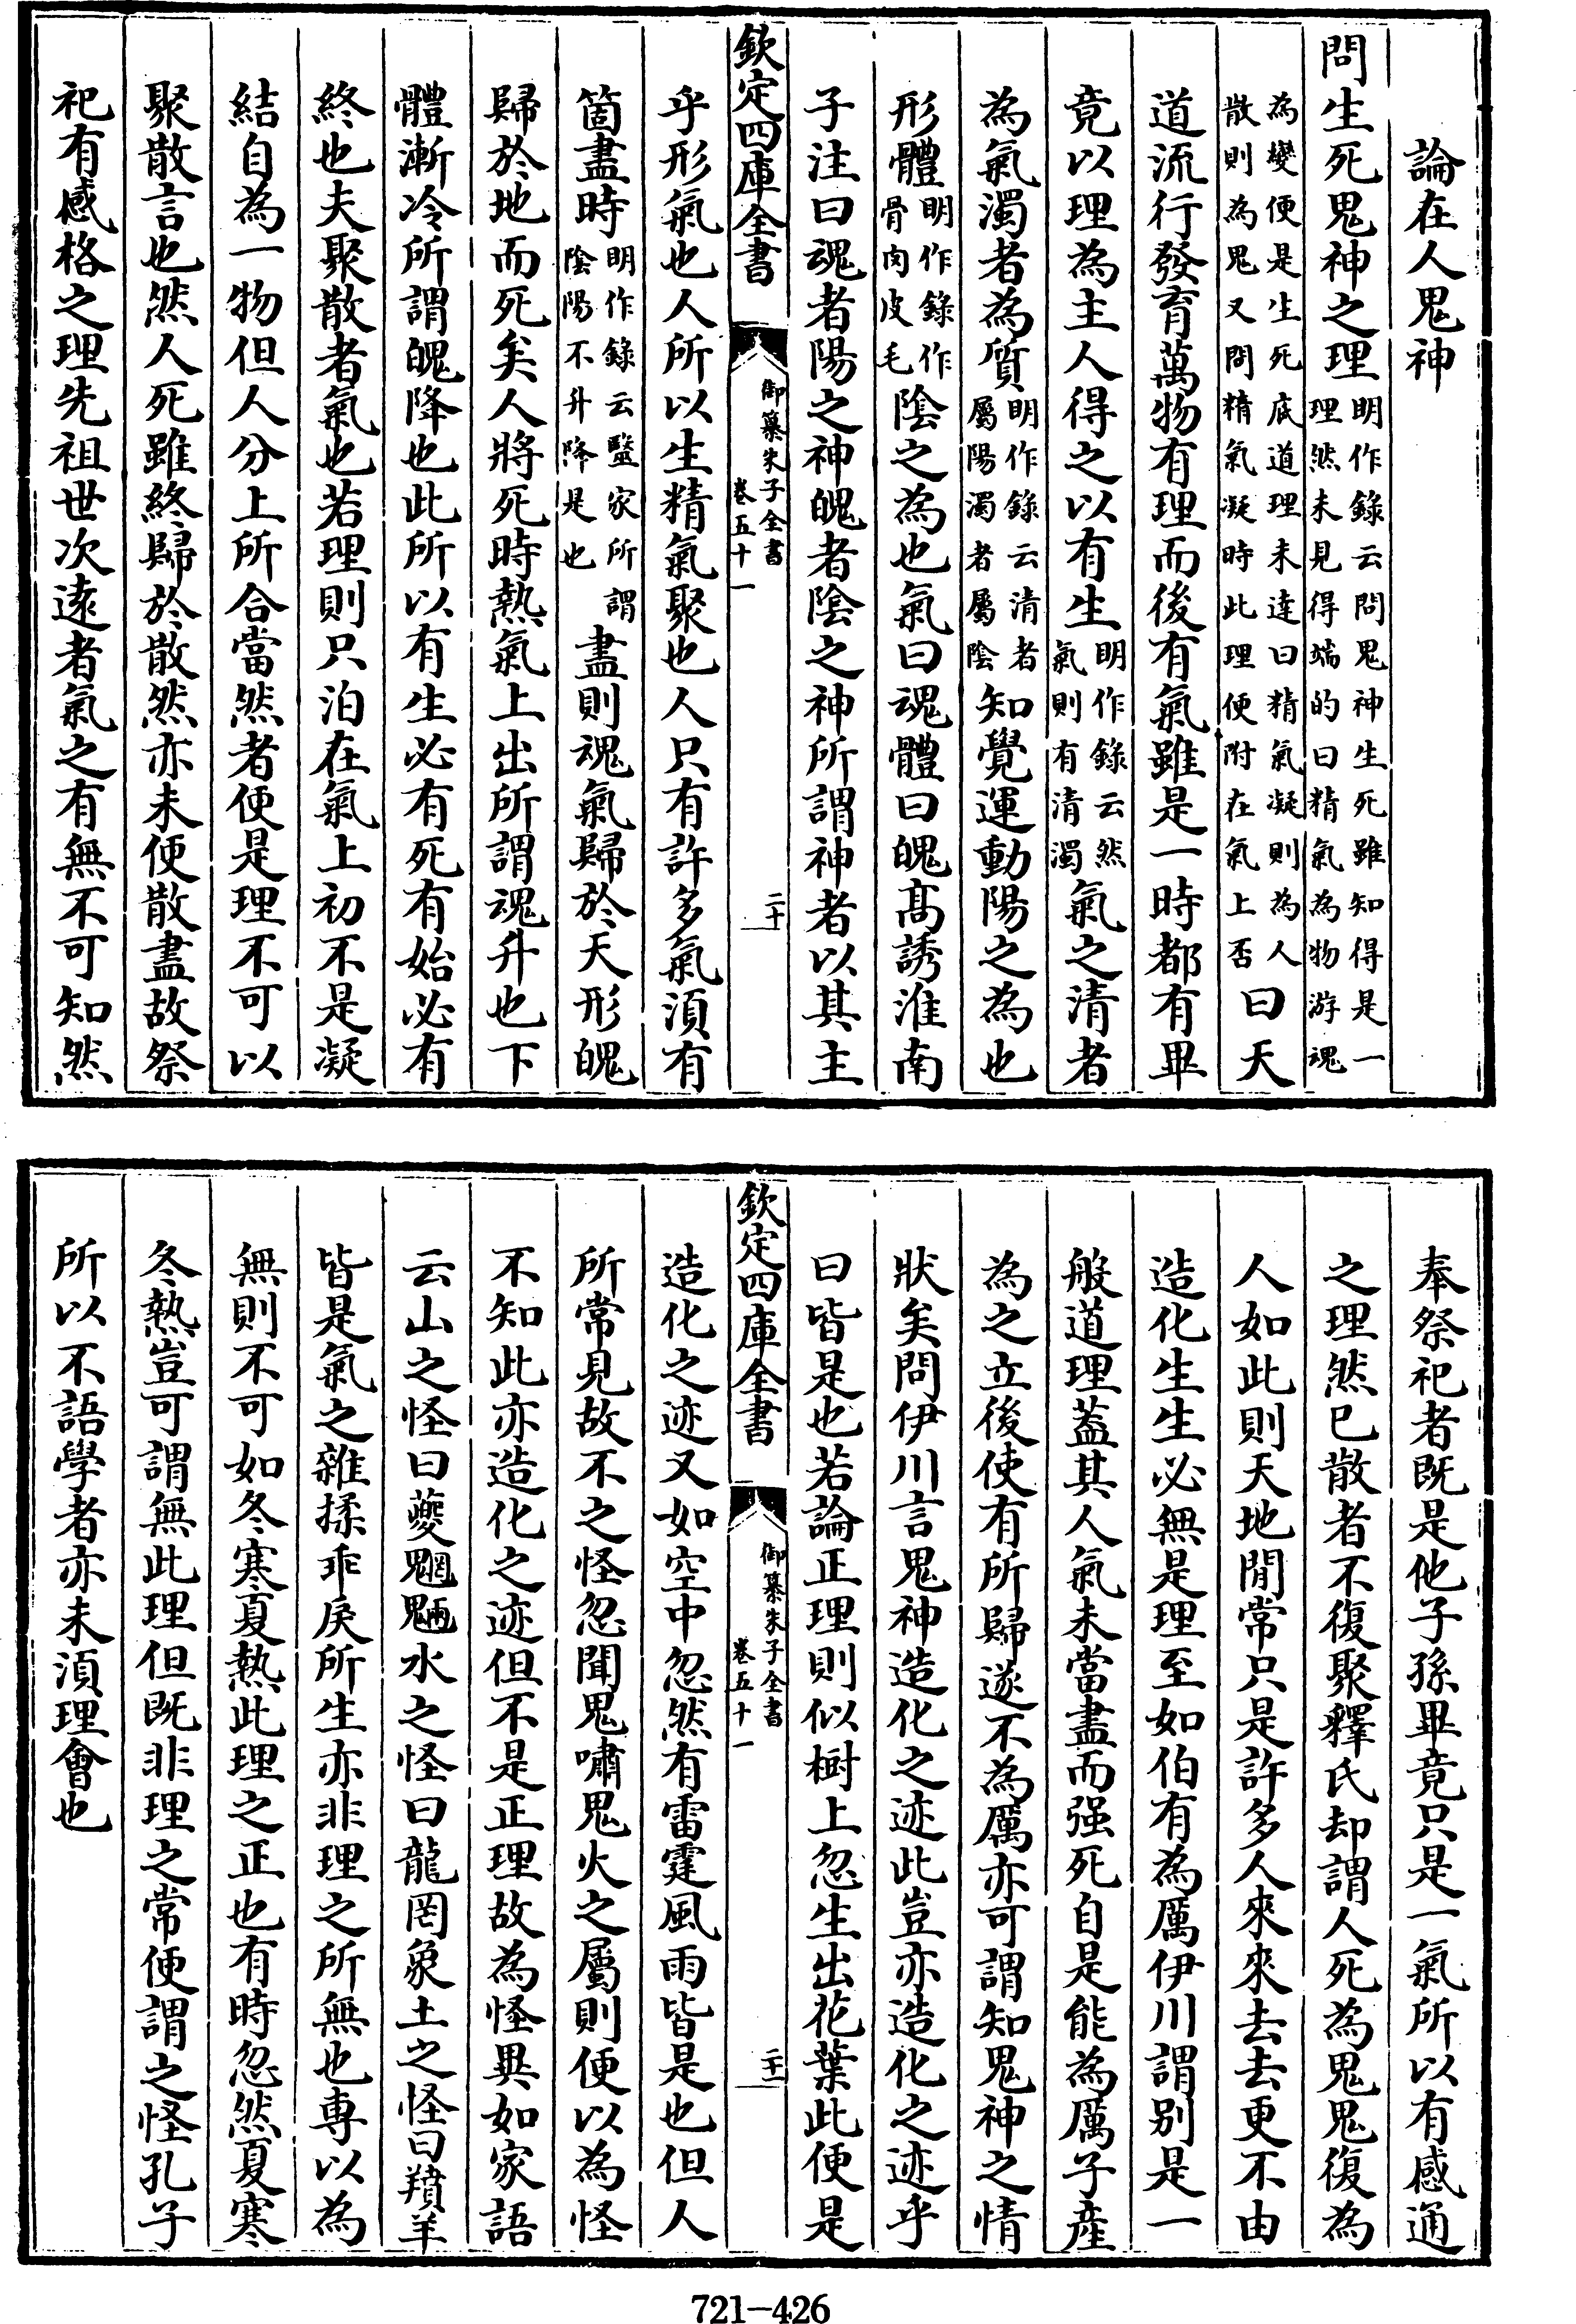 論在人鬼神
問生死鬼神之理明作錄云問鬼神生死雖知得是一理然未見得端的曰精氣為物游魂
為變便是生死底道理未達曰精氣凝則為人散則為鬼又問精氣凝時此理便附在氣上否曰天
道流行發育萬物有理而後有氣雖是一時都有畢
竟以理為主人得之以有生明作錄云然氣則有清濁氣之清者
為氣濁者為質明作錄云清者屬陽濁者屬陰知覺運動陽之為也
形體明作錄作骨肉皮毛陰之為也氣曰魂體曰魄高誘淮南
子注曰魂者陽之神魄者陰之神所謂神者以其主
欽定四庫全書
御纂朱子全書
卷五十一
二十
乎形氣也人所以生精氣聚也人只有許多氣須有
箇盡時明作錄云醫家所謂陰陽不升降是也盡則魂氣歸於天形魄
歸於地而死矣人將死時熱氣上出所謂魂升也下
體漸冷所謂魄降也此所以有生必有死有始必有
終也夫聚散者氣也若理則只泊在氣上初不是凝
結自為一物但人分上所合當然者便是理不可以
聚散言也然人死雖終歸於散然亦未便散盡故祭
祀有感格之理先祖世次遠者氣之有無不可知然
奉祭祀者既是他子孫畢竟只是一氣所以有感通
之理然已散者不復聚釋氏却謂人死為鬼鬼復為
人如此則天地閒常只是許多人來來去去更不由
造化生生必無是理至如伯有為厲伊川謂别是一
般道理蓋其人氣未當盡而强死自是能為厲子產
為之立後使有所歸遂不為厲亦可謂知鬼神之情
狀矣問伊川言鬼神造化之迹此豈亦造化之迹乎
曰皆是也若論正理則似樹上忽生出花葉此便是
欽定四庫全書
御纂朱子全書
卷五十一
二十一
造化之迹又如空中忽然有雷霆風雨皆是也但人
所常見故不之怪忽聞鬼嘯鬼火之屬則便以為怪
不知此亦造化之迹但不是正理故為怪異如家語
云山之怪曰夔魍魎水之怪曰龍罔象土之怪曰羵羊
皆是氣之雜揉乖戾所生亦非理之所無也專以為
無則不可如冬寒夏熱此理之正也有時忽然夏寒
冬熱豈可謂無此理但既非理之常便謂之怪孔子
所以不語學者亦未須理會也
721-426